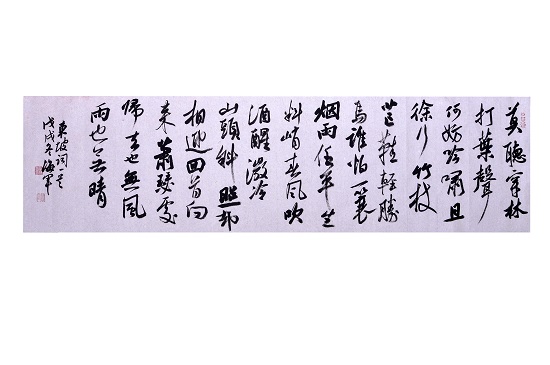 莫聽穿林
打葉聲
何妨吟嘯且
徐行竹杖
芒鞋輕勝
馬誰怕一蓑
烟雨任平生
料峭春風吹
酒醒微冷
山頭斜照却
相迎回首向
來蕭瑟處
歸去也無風
雨也无晴
東坡詞一首
戊戌冬海軍